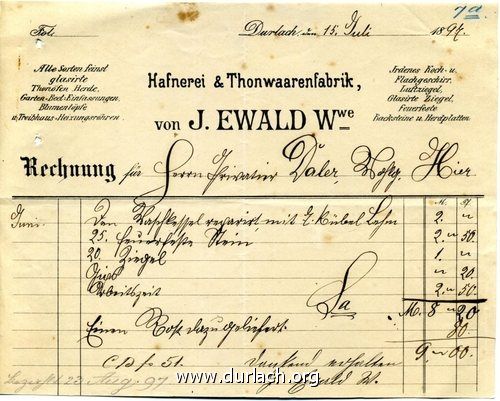 7a
Fol.
Durlach, den 15. Juli 1897.
Alle Sorten feinst
glasirte
Thonöfen Herde,
Garten-Beet-Einfassungen,
Blumentöpfe
u. Treibhaus-Heizungsröhren.
Hafnerei & Thonwaarenfabrik,
von J. EWALD Wwe
Irdenes Koch- u.
Flachgeschirr,
Luftziegel,
Glasirte Ziegel,
Feuerfeste
Backsteine u. Herdplatten
Rechnung für Herrn Privatier Daler Hier
Juni
6) Den Waschkessel reparirt mit Kübel Lehm 2. "
25. feuerfeste Stein 2. " 50.
20. Ziegel 1. "
" 20.
Arbeitszeit 2. " 50.
Sa M. 8 " 20
Einen Rost dazu geliefert. 80.
9. " 00.
dankend erhalten
Ewald W.
23 Aug. 97
www.durlach.org